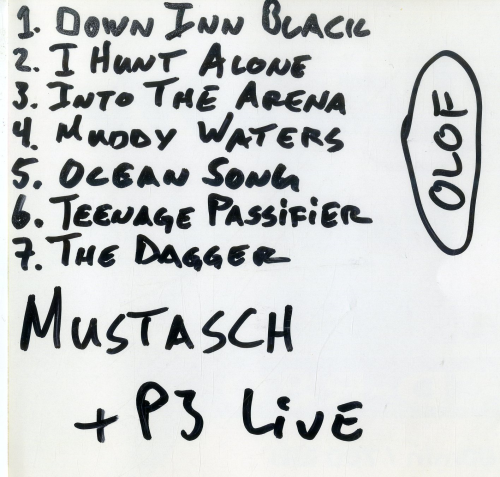 1. DOWN INN BLACK
2. I HUNT ALONE
3. INTO THE ARENA
4. MUDDY WATERS
5. OCEAN SONG
6. TEENAGE PASSIFIER
7. THE DAGGER
OLOF
MUSTASCH
+ P3 LiVE